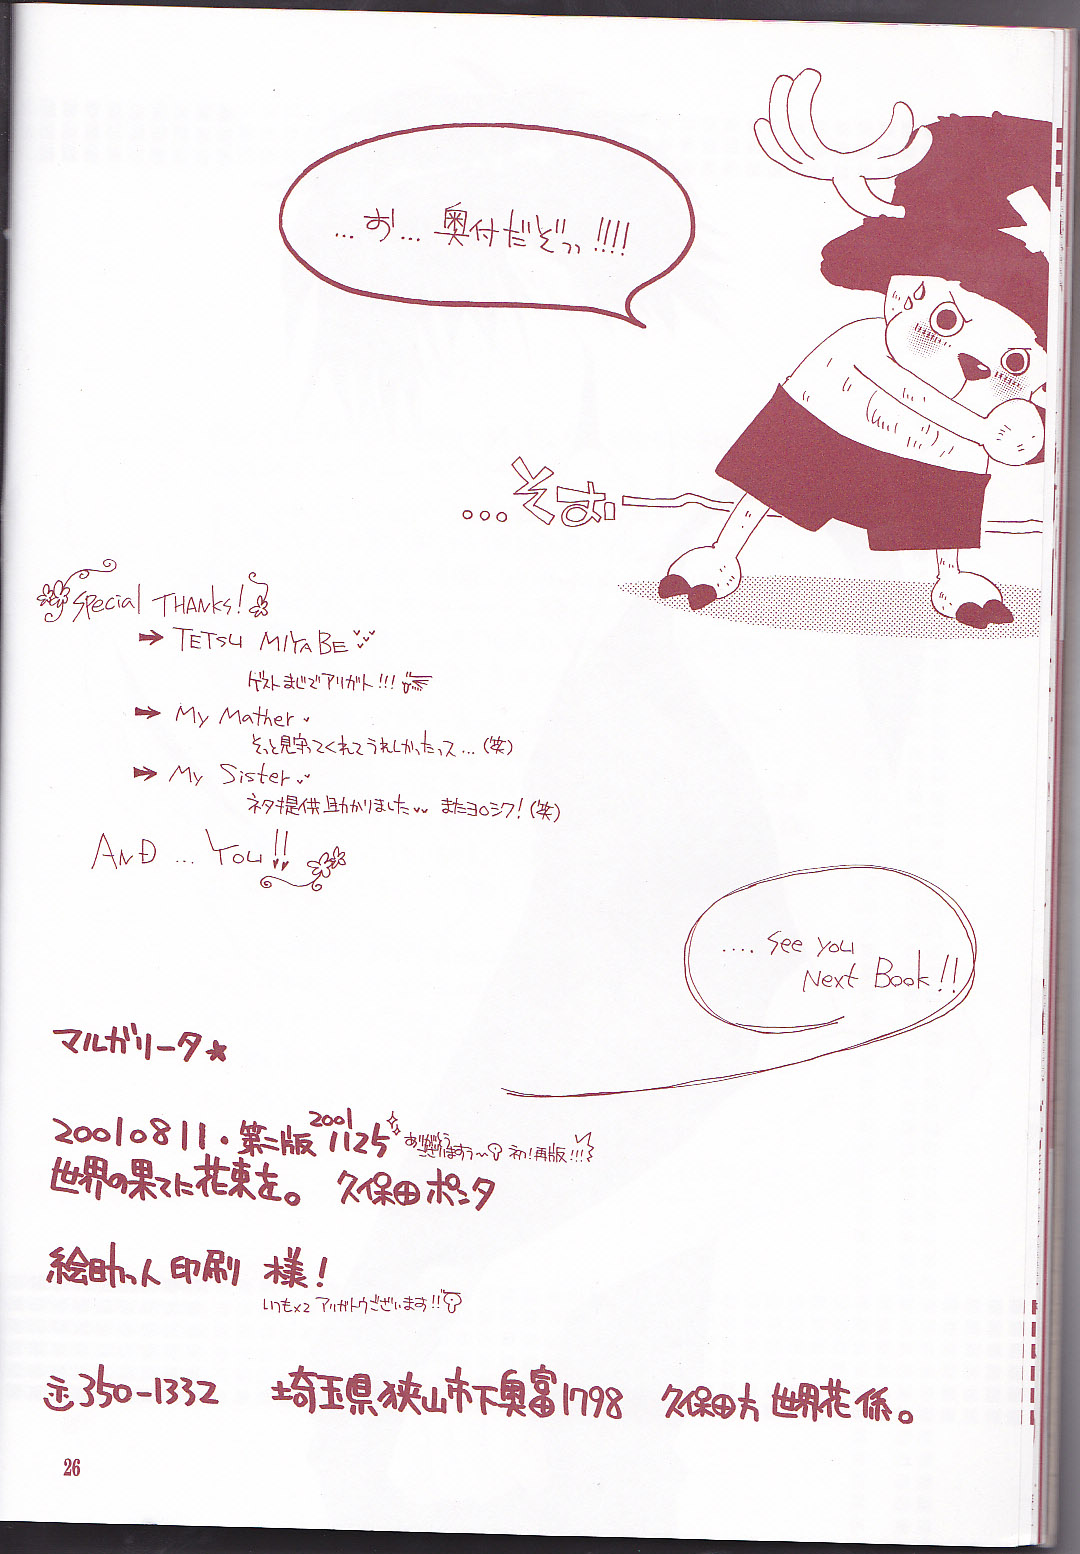 …お…奥付だぞっっ!!!!
…そば
Special THANKS!
➡ TETSU MIYABE
ゲストまじでアリガト!!!
➡ My Mather
そっと見守ってくれてうれしかったっス…(笑)
➡ My Sister
ネタ提供助かりました またヨロシク!(笑)
AND … YOU!!
.... See you
Next Book!!
マルガリータ★
20010811・第二版 2001 1125 ありがとうございますぅ〜 初!再版!!!
世界の果てに花束を。 久保田ポンタ
絵助っ人印刷 様!
いつも×2 アリガトウございます!!
〒350-1332 埼玉県狭山市下奥富1798 久保田方 世界花係。
26